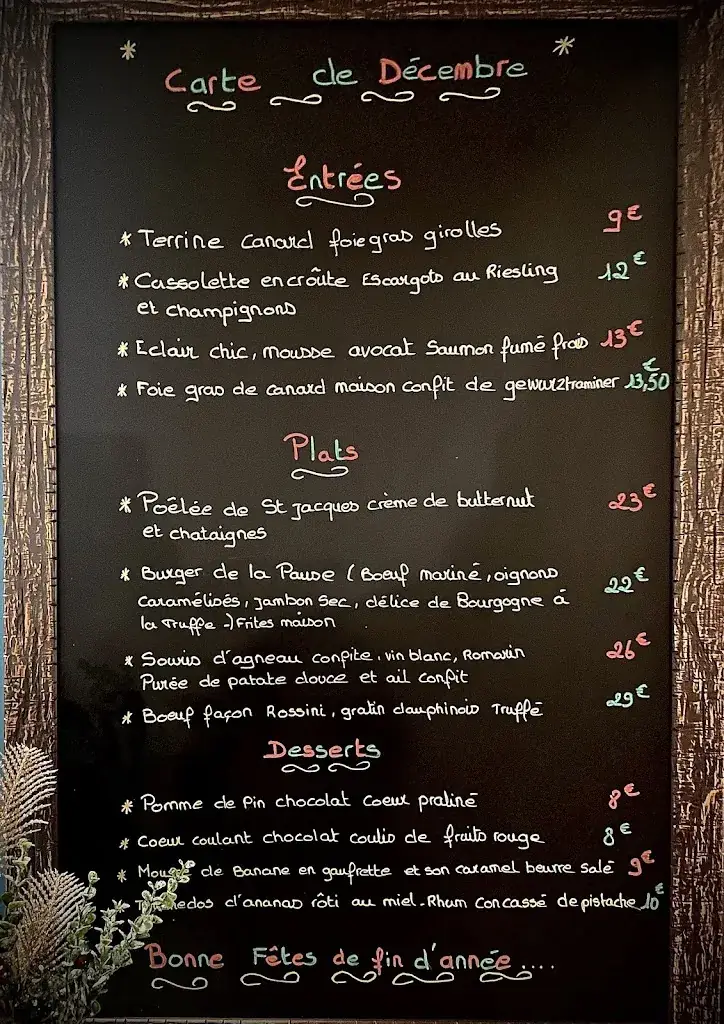 * *
Carte de Décembre
Entrées
* Terrine canard foie gras girolles 9€
* Cassolette en croûte Escargots au Riesling 12€
et champignons
* Eclair chic, mousse avocat Saumon fumé frais 13€
* Foie gras de canard maison confit de gewurztraminer 13,50€
Plats
* Poêlée de St Jacques crème de butternut 23€
et chataignes
* Burger de la Pause (Boeuf mariné, oignons 22€
caramélisés, Jambon Sec, délice de Bourgogne à
la Truffe -) Frites maison
* Souris d'agneau confite, vin blanc, Romarin 26€
Purée de patate douce et ail confit
* Boeuf façon Rossini, gratin dauphinois Truffé 29€
Desserts
* Pomme de Pin chocolat Coeur praliné 8€
* Coeur coulant chocolat coulis de fruits rouge 8€
* de Banane en gaufrette et son caramel beurre salé 9€
d'ananas rôti au miel-Rhum Concassé de pistache 10€
Bonne Fêtes de fin d'année....